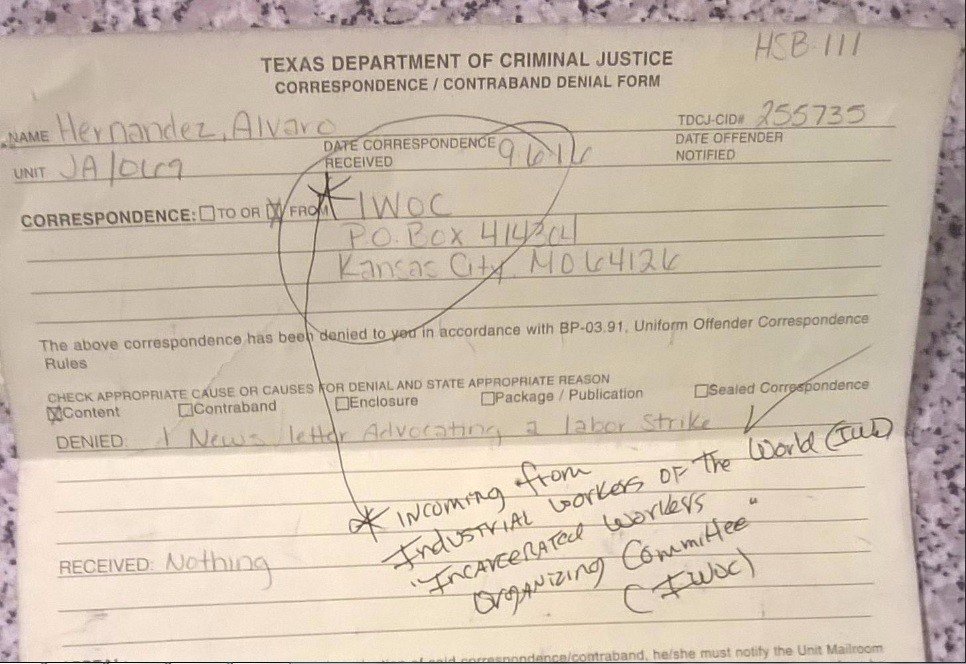 HSB-111
TEXAS DEPARTMENT OF CRIMINAL JUSTICE
CORRESPONDENCE / CONTRABAND DENIAL FORM
NAME Hernandez, Alvaro TDCJ-CID# 255735
UNIT JA/069 DATE CORRESPONDENCE RECEIVED 9616 DATE OFFENDER NOTIFIED
CORRESPONDENCE: ☐ TO OR ☒ FROM * IWOC
P.O. Box
Kansas City, MO 64126
The above correspondence has been denied to you in accordance with BP-03.91, Uniform Offender Correspondence
Rules
CHECK APPROPRIATE CAUSE OR CAUSES FOR DENIAL AND STATE APPROPRIATE REASON
☒ Content ☐ Contraband ☐ Enclosure ☐ Package / Publication ☐ Sealed Correspondence
DENIED: 1 News letter Advocating a labor Strike
* INCOMING from
Industrial Workers OF The World (IWW)
"INCARCERATED Workers
Organizing Committee"
(IWOC)
RECEIVED: Nothing
said correspondence/contraband, he/she must notify the Unit Mailroom